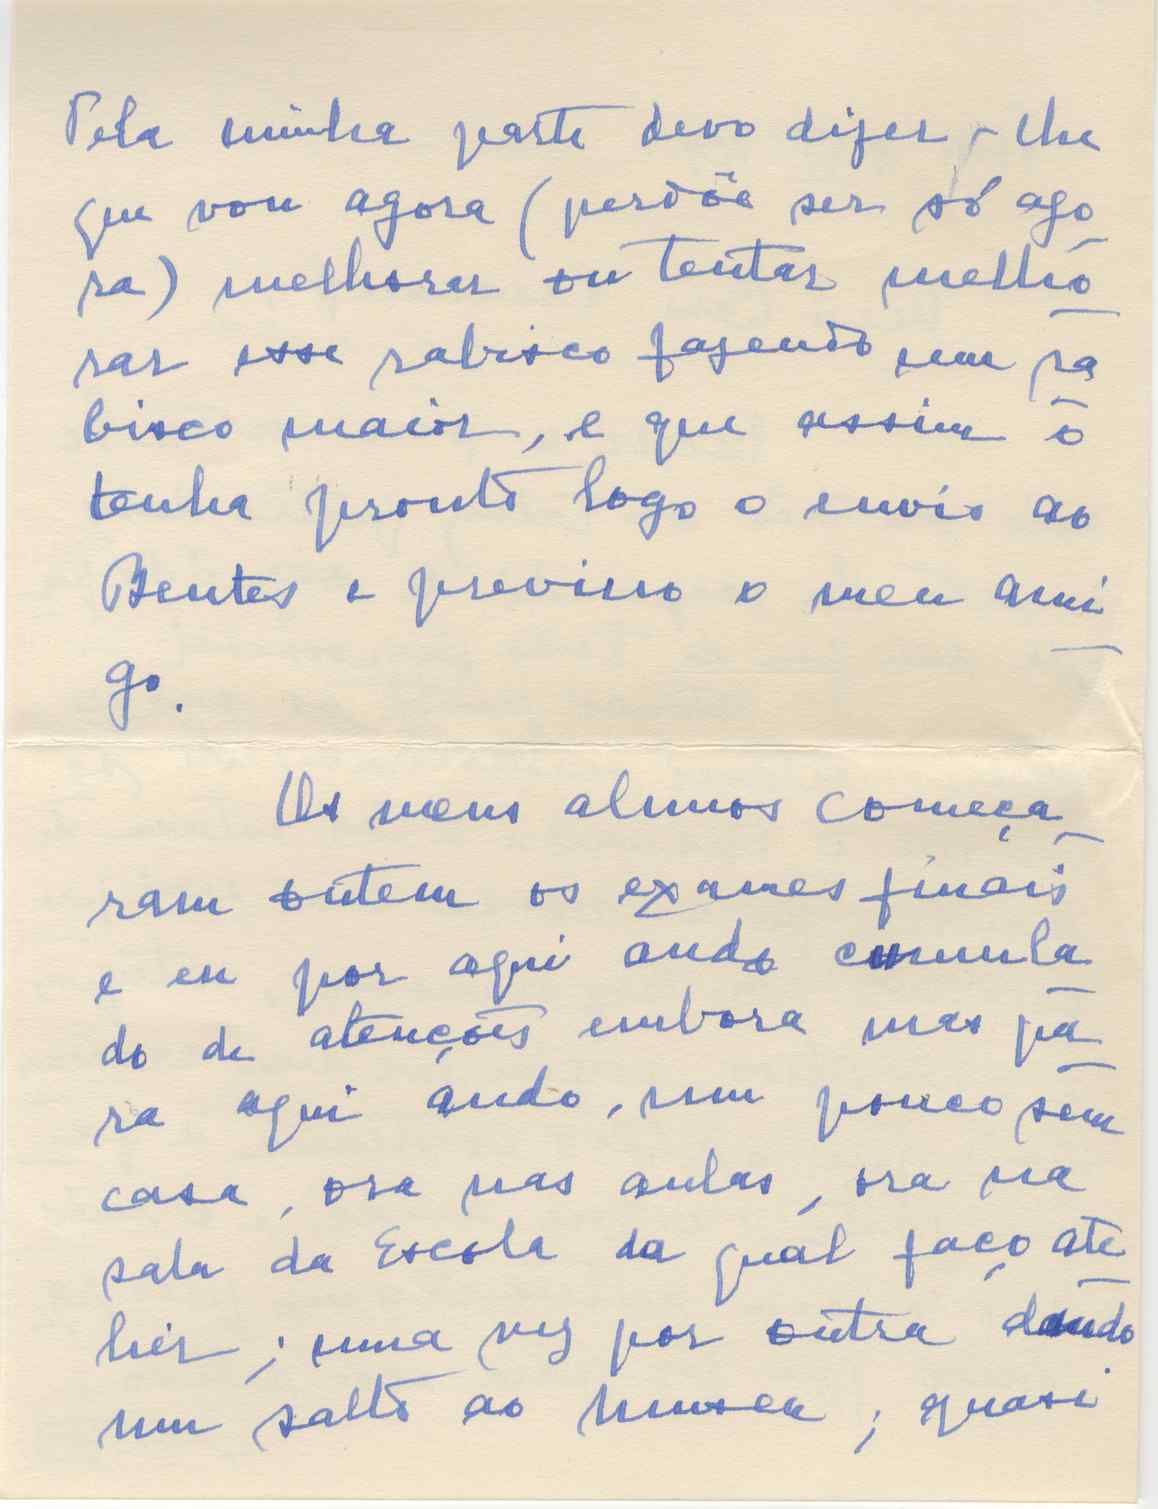 Pela minha parte devo dizer-lhe
que vou agora (perdôe ser só ago
ra) melhorar ou tentar melho
rar esse rabisco fazendo um ra
bisco maior, e que assim o
tenha pronto logo o envio ao
Bentes e previno o meu ami
go.
Os meus alunos começa
ram ontem os exames finais
e eu por aqui ando cumula
do de atenções embora mas pa
ra aqui ando, um pouco sem
casa, ora nas aulas, ora na
sala da Escola da qual faço ate
lier; uma vez por outra dando
um salto ao museu; quasi